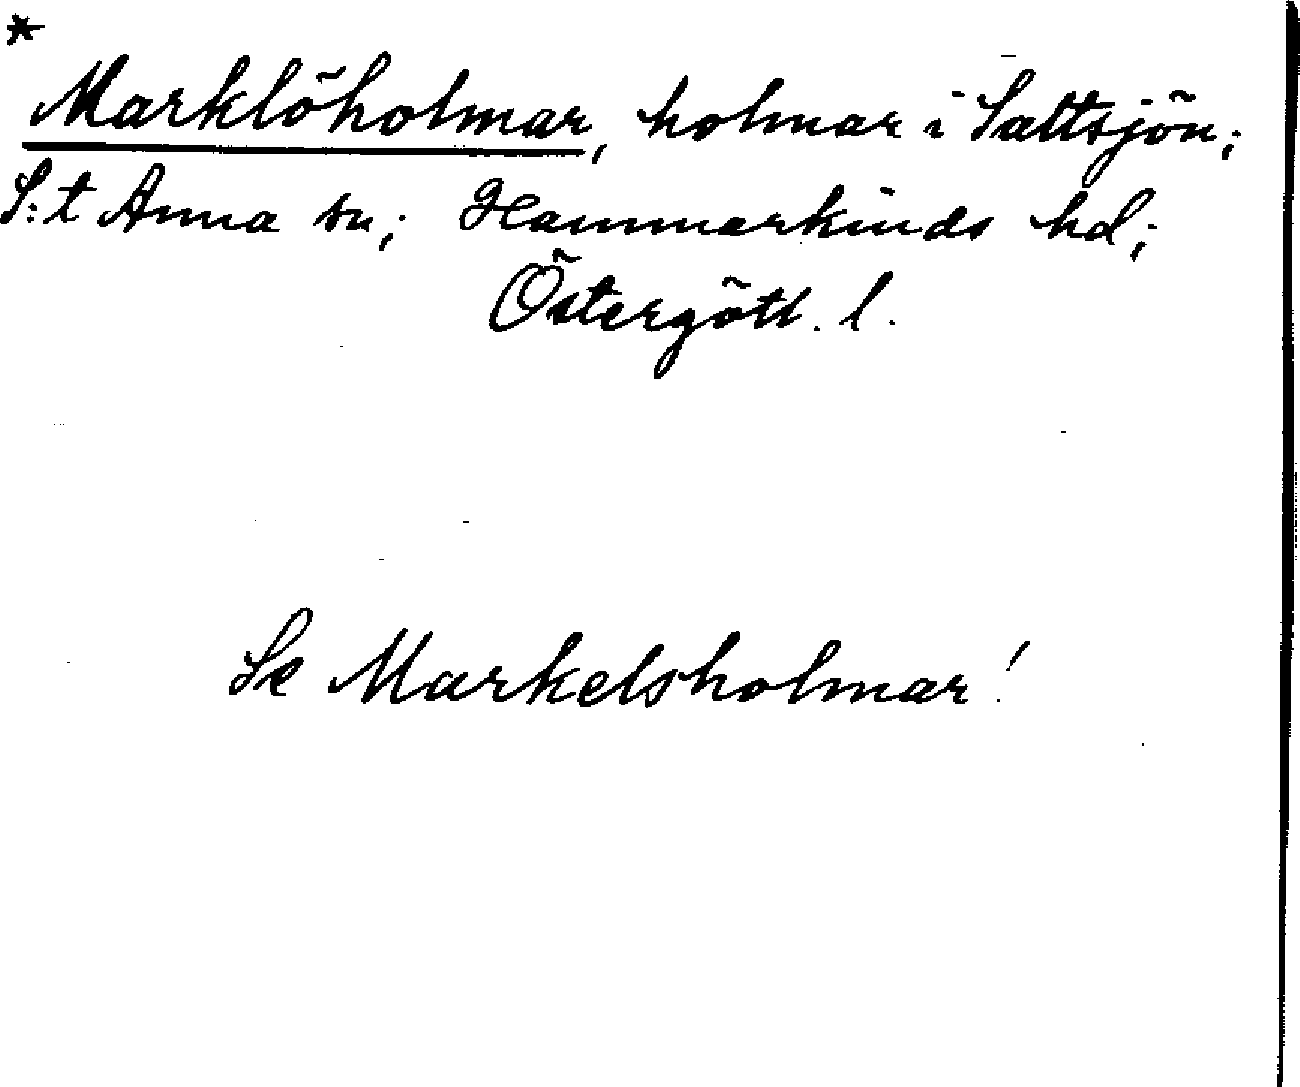 *
Marklöholmar, holmar i Saltsjön;
S:t Anna sn; Hammarkinds hd;
Östergötl. l.
Se Markelsholmar!